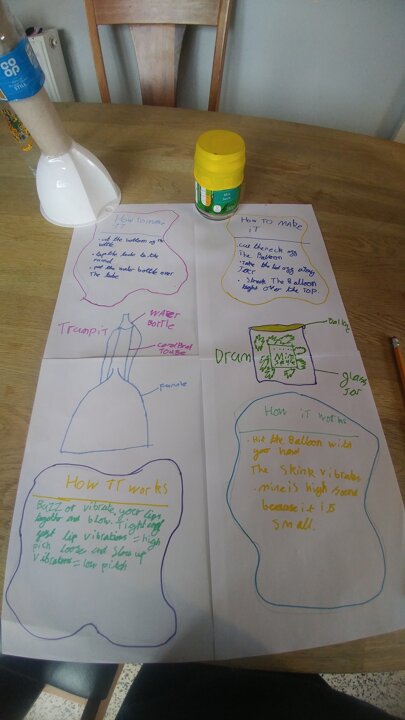 CO
OP
How To make
IT
• cut the bottom of the
bottle
• tape the tube to the
funnel
• put the water bottle over
The tube
How To make
iT
cut the neck off
The Balloon
• Take the lid off
Jar
• Strech The Balloon
tight over the Top.
Trumpit
WATER
BOTTLE
cardBord
TOUBE
funnle
Drum
Mix
glass
JOr
How IT works
BUZZ or vibrate your lips
together and blow. Tight and
fast lip vibrations = high
pich Loose and Slow up
vibrations = low pitch
How iT works
• Hit the Balloon with
your hand
The Skink vibrates
• mine is high sound
because it is
small.